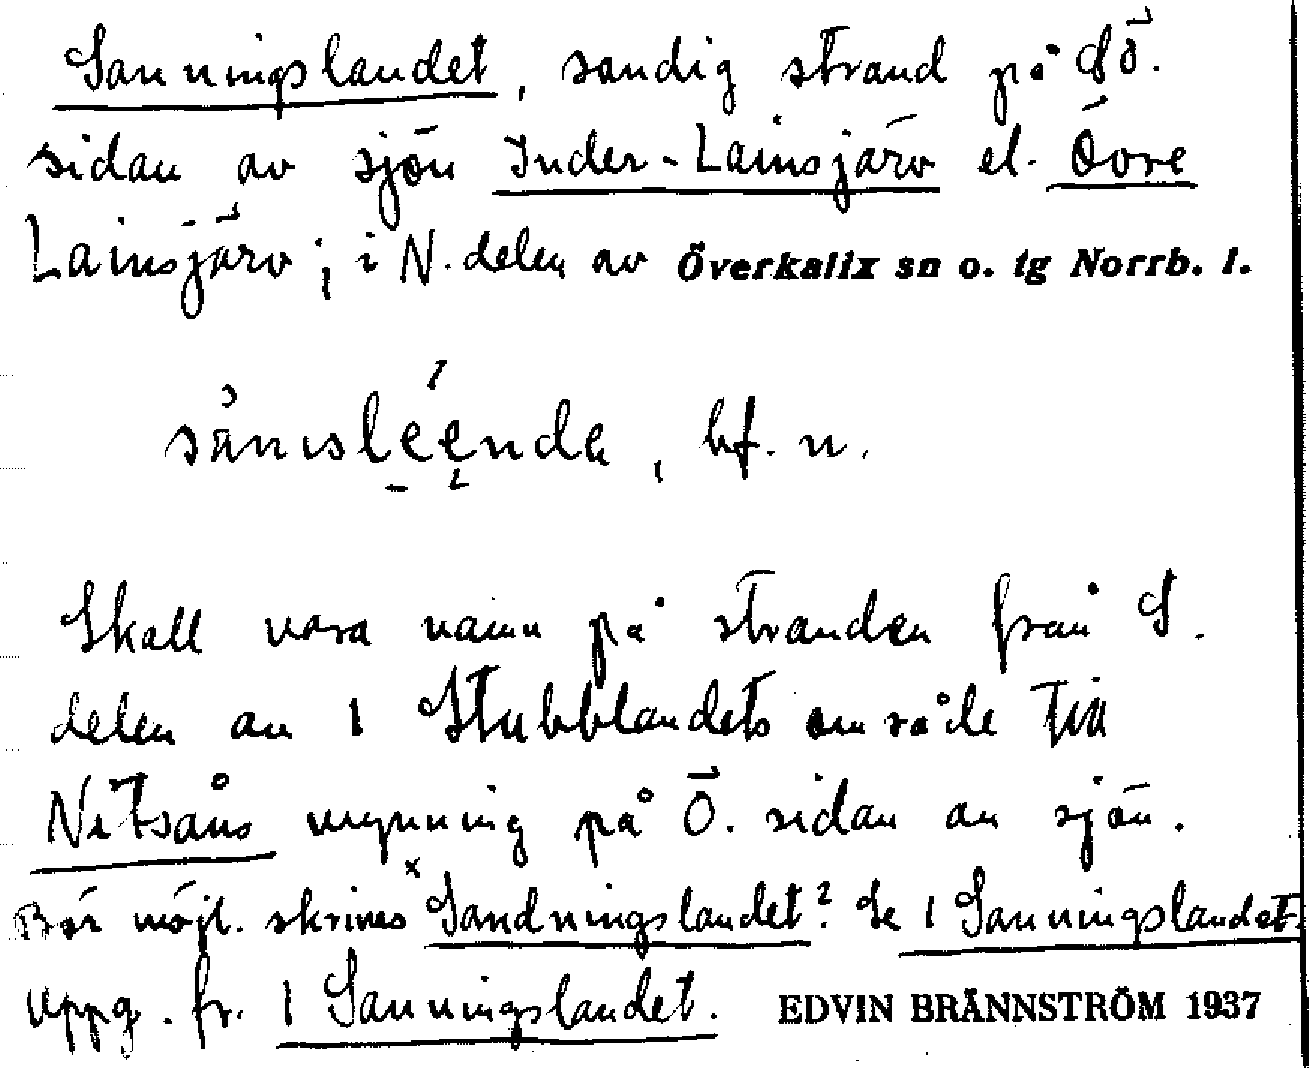 Sanningslandet, sandig strand på SÖ.
sidan av sjön Inder-Lainsjärv el. Övre
Lainsjärv; i N. delen av Överkalix sn o. tg Norrb. l.
bf. n.
Skall vara namn på stranden från S.
delen av 1 Stubblandets område till
Nitsåns mynning på Ö. sidan av sjön.
Bör möjl. skrivas ˣSandningslandet? Se 1 Sanningslandet.
Uppg. fr. 1 Sanningslandet. EDVIN BRÄNNSTRÖM 1937